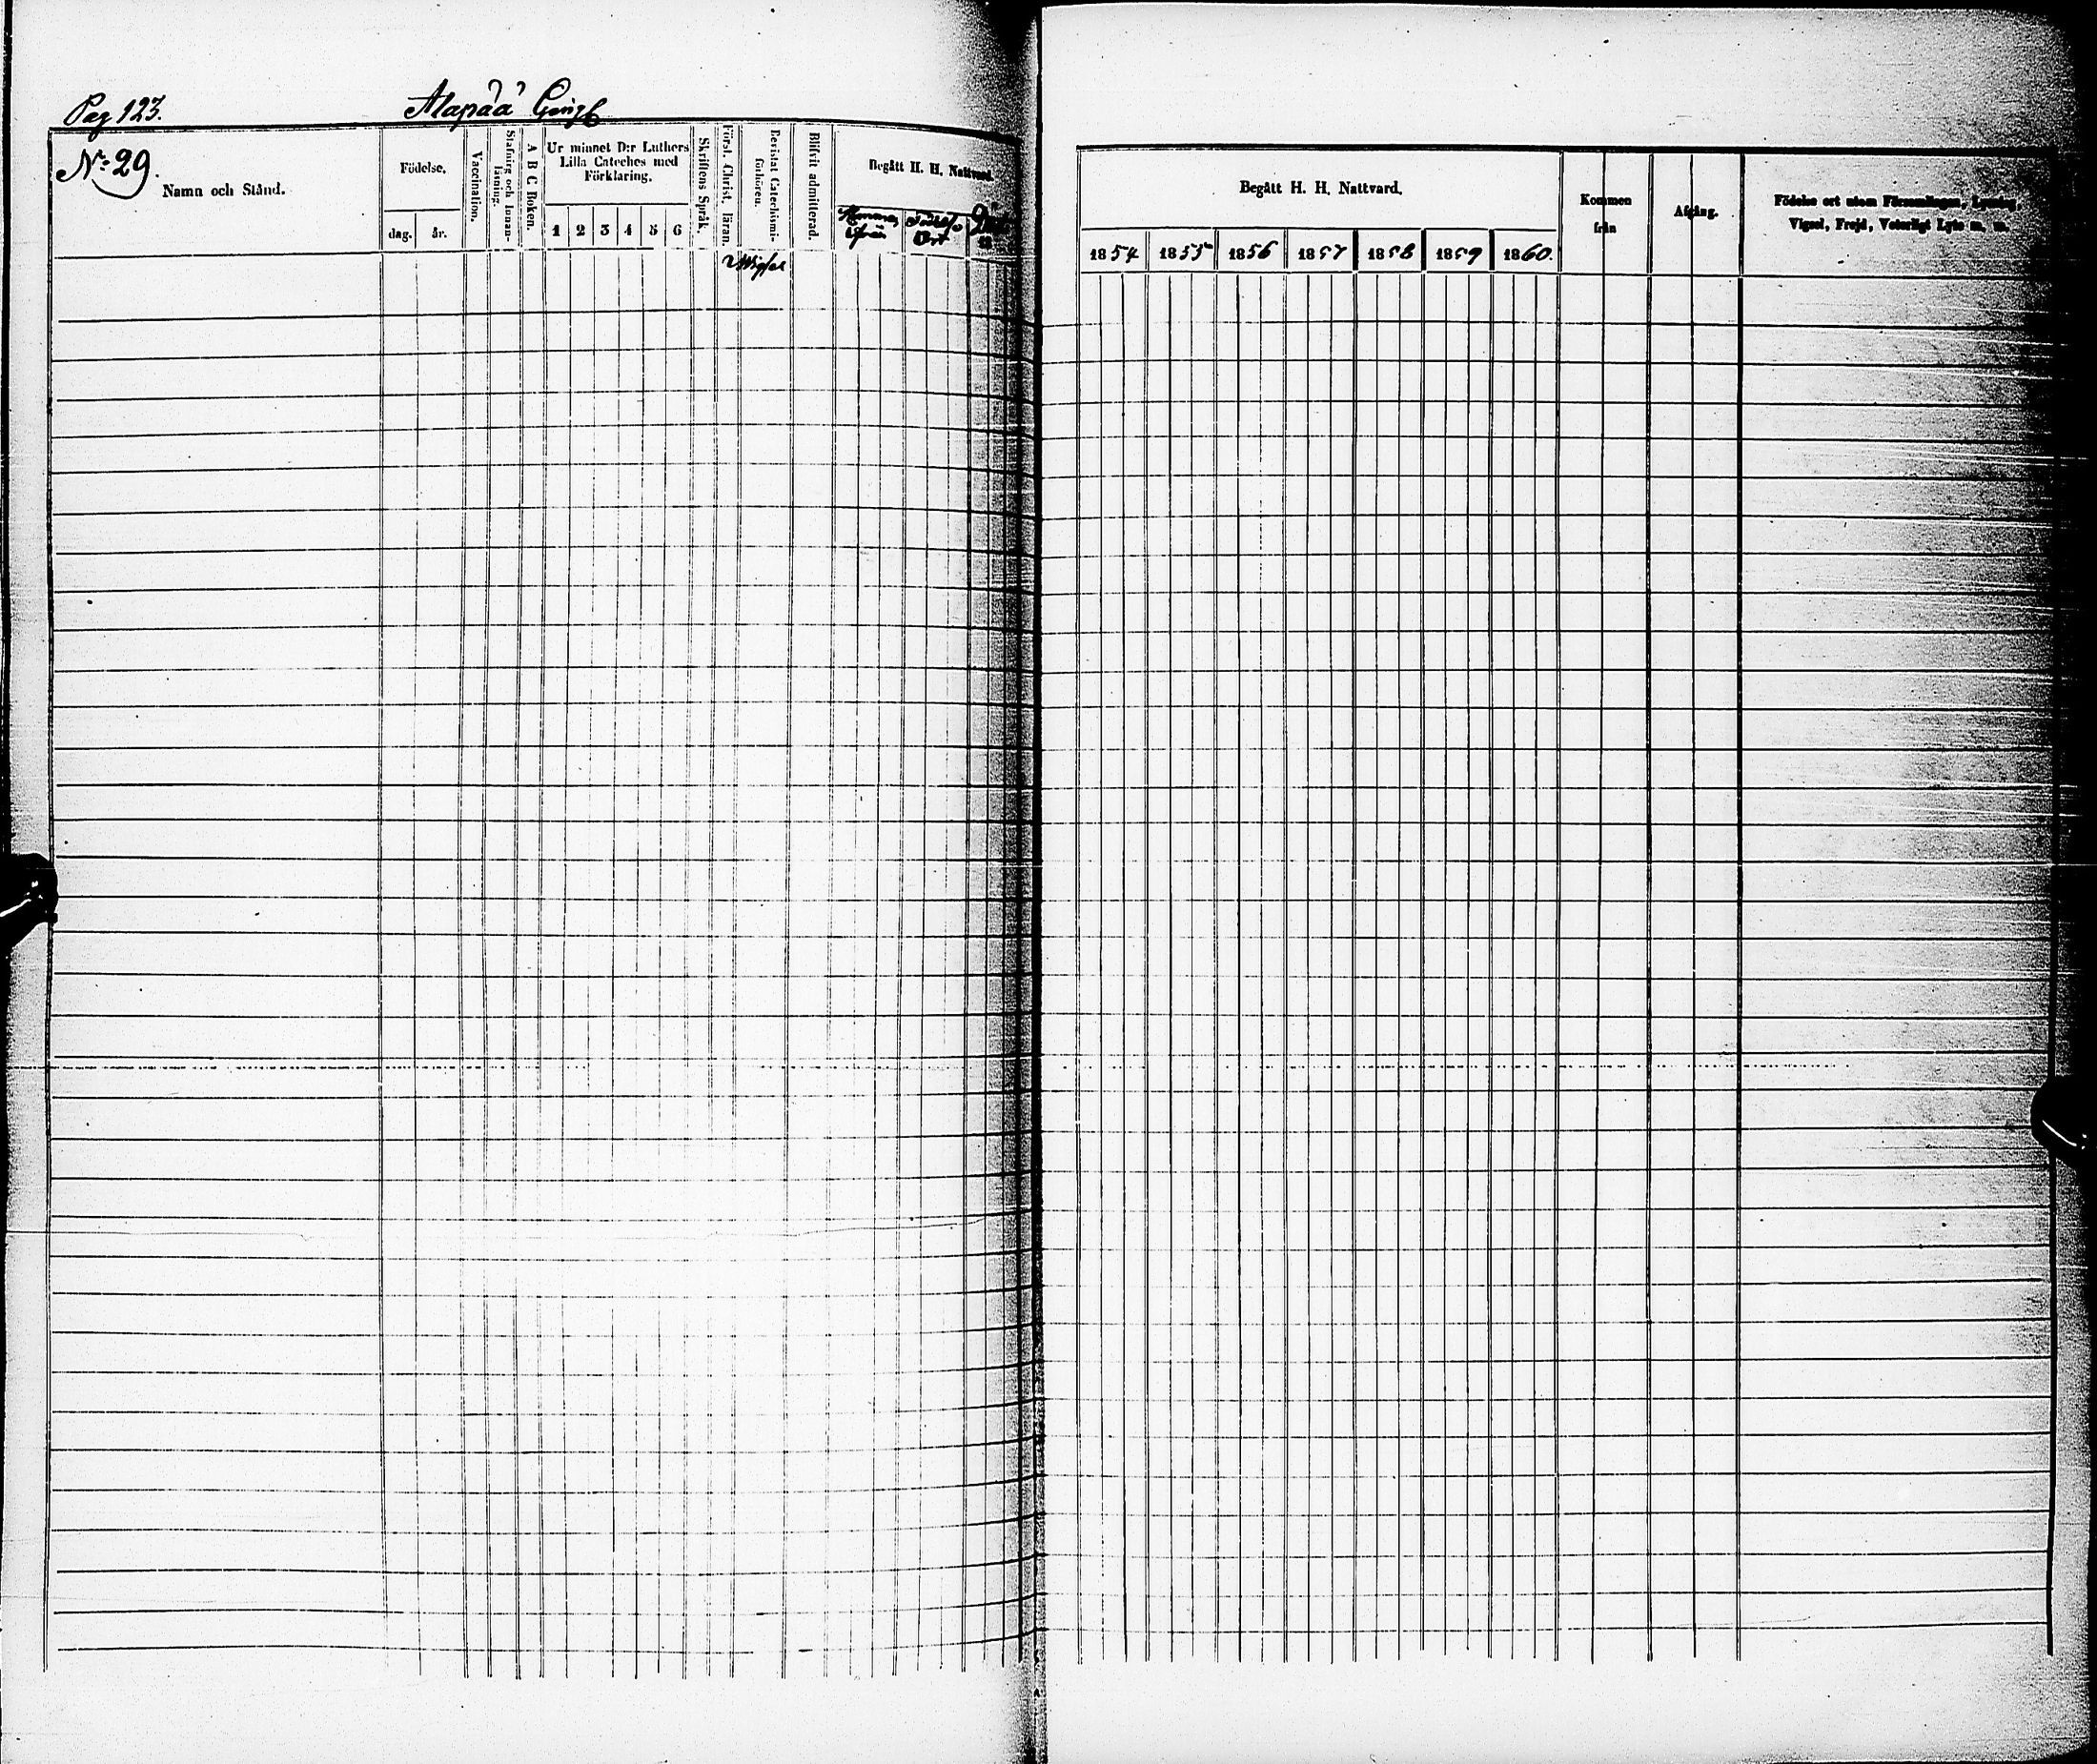 Pag 123.
Alapää
No: 29.
Namn och Stånd.
Födelse,
dag.
år.
Vaccination.
Stafning och Innan-
läsning.
A B C Boken.
Ur minnet D:r Luthers
Lilla Cateches med
Förklaring.
1 2 3 4 5 6
Skriftens Språk.
Först. Christ. läran.
Bevistat Catechismi-
förhören.
Wigsel
Blifvit admitterad.
Begått H. H. Nattvard.
Kommen
ifrån
Födelse
Ort
Begått H. H. Nattvard.
1854 1855 1856 1857 1858 1859 1860.
Kommen
från
Afgång.
Födelse ort utom Församlingen, Lysning,
Vigsel, Frejd, Veterligt Lyte m. m.